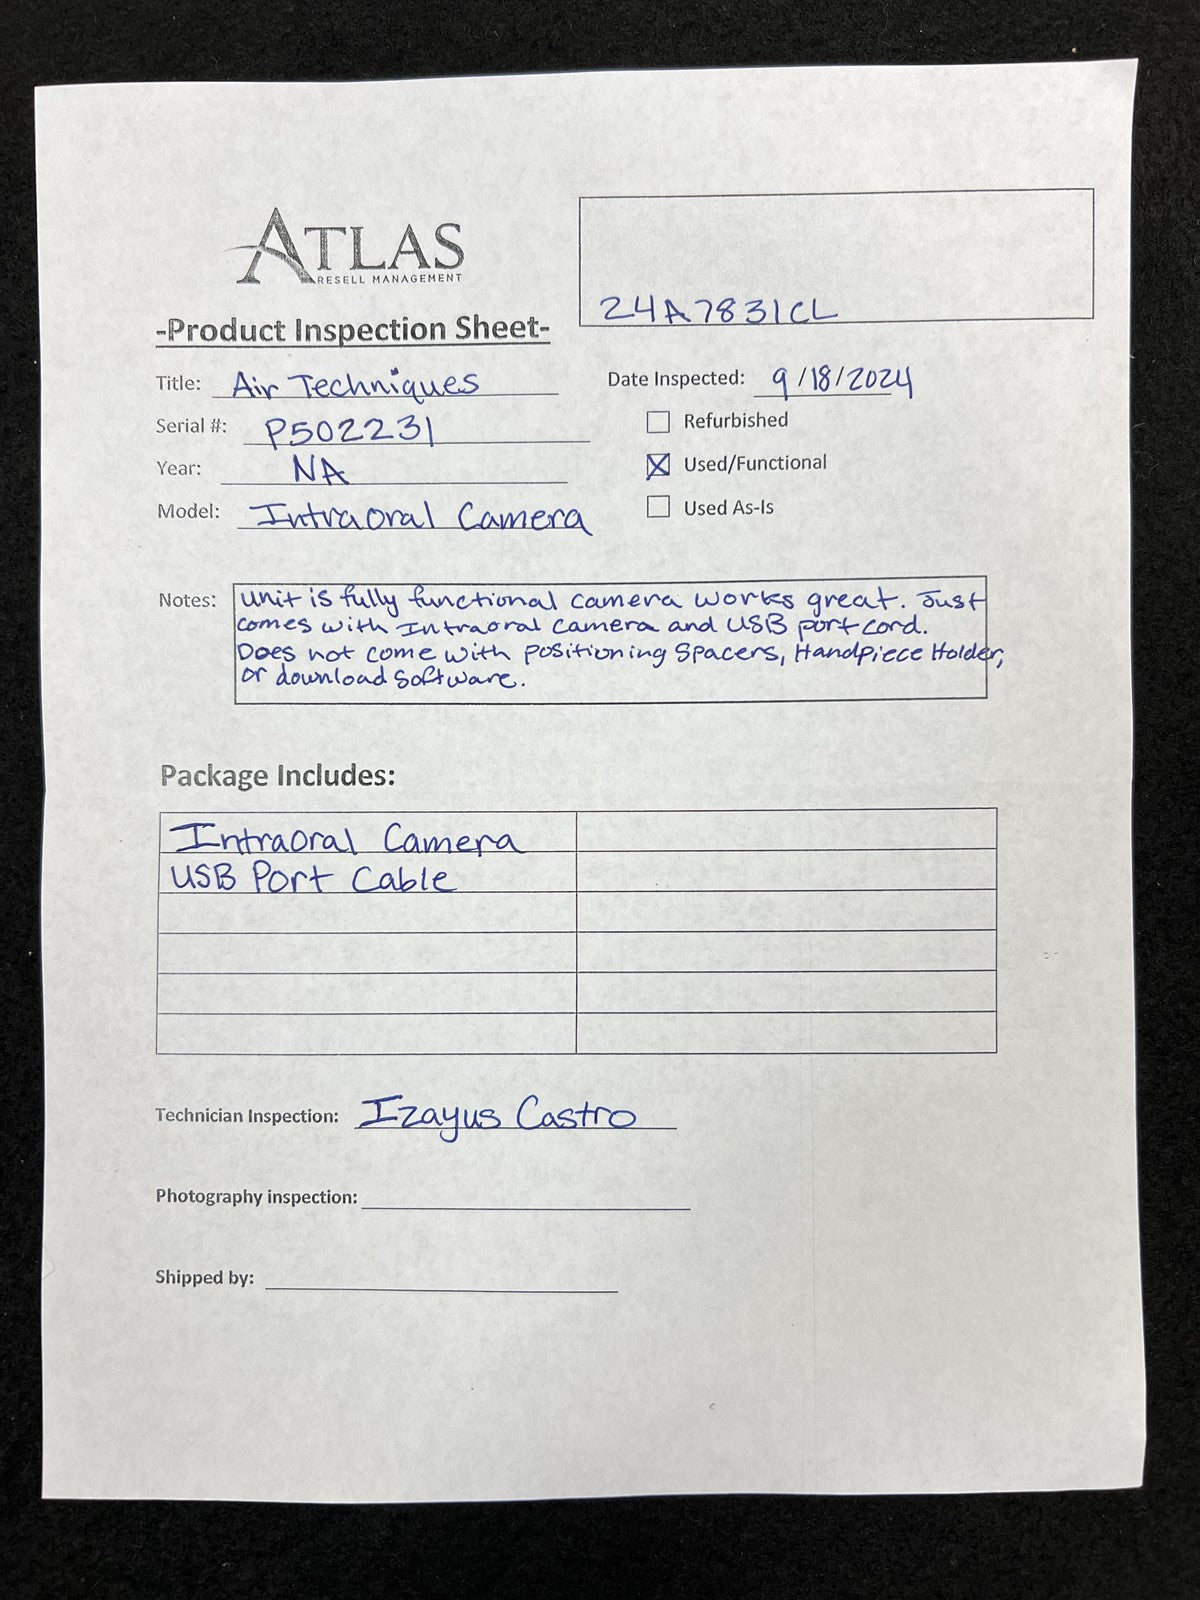 ATLAS
RESELL MANAGEMENT
24A7831CL
-Product Inspection Sheet-
Title: Air Techniques
Date Inspected: 9/18/2024
Serial #: P502231
Refurbished
Year: NA
Used/Functional
Model: Intraoral Camera
Used As-Is
Notes: unit is fully functional camera works great. Just
comes with Intraoral camera and USB port cord.
Does not come with positioning Spacers, Handpiece Holder,
or download software.
Package Includes:
Intraoral Camera
USB Port Cable
Technician Inspection: Izayus Castro
Photography inspection:
Shipped by: